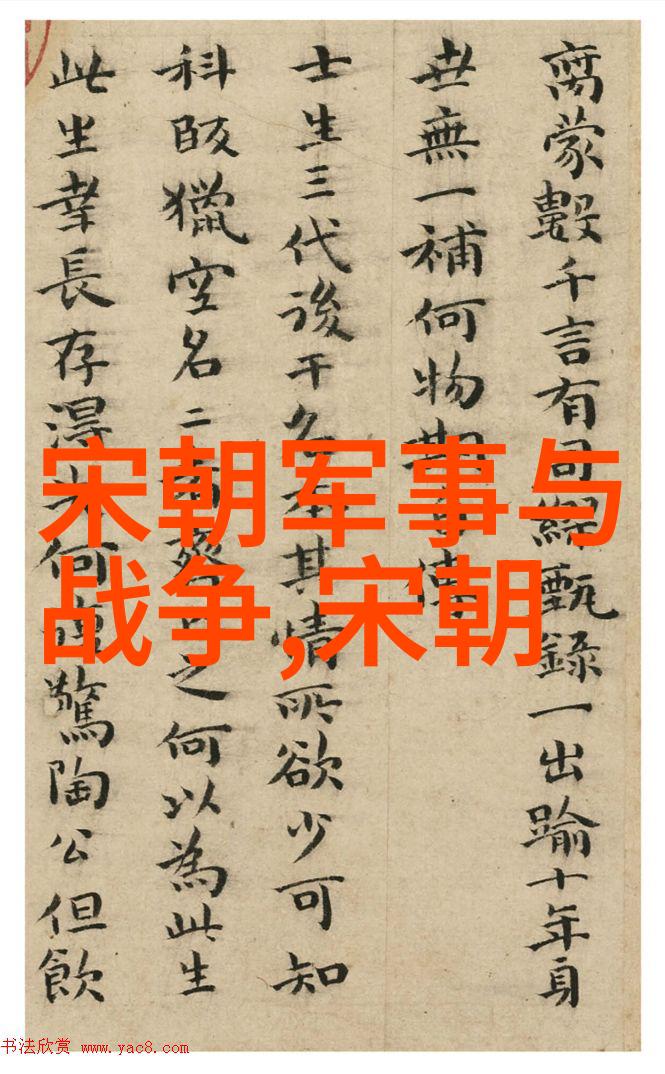 蒙數千言有司繆甄錄一出踰十年身
世無一補何物期
士生三代後干名本其情所欲少可知
科獵空名二者之何以為此生
此生幸長存得失何驚陶公但飲
宋朝军事与
战争,宋朝
书法欣赏 www.yac8.com